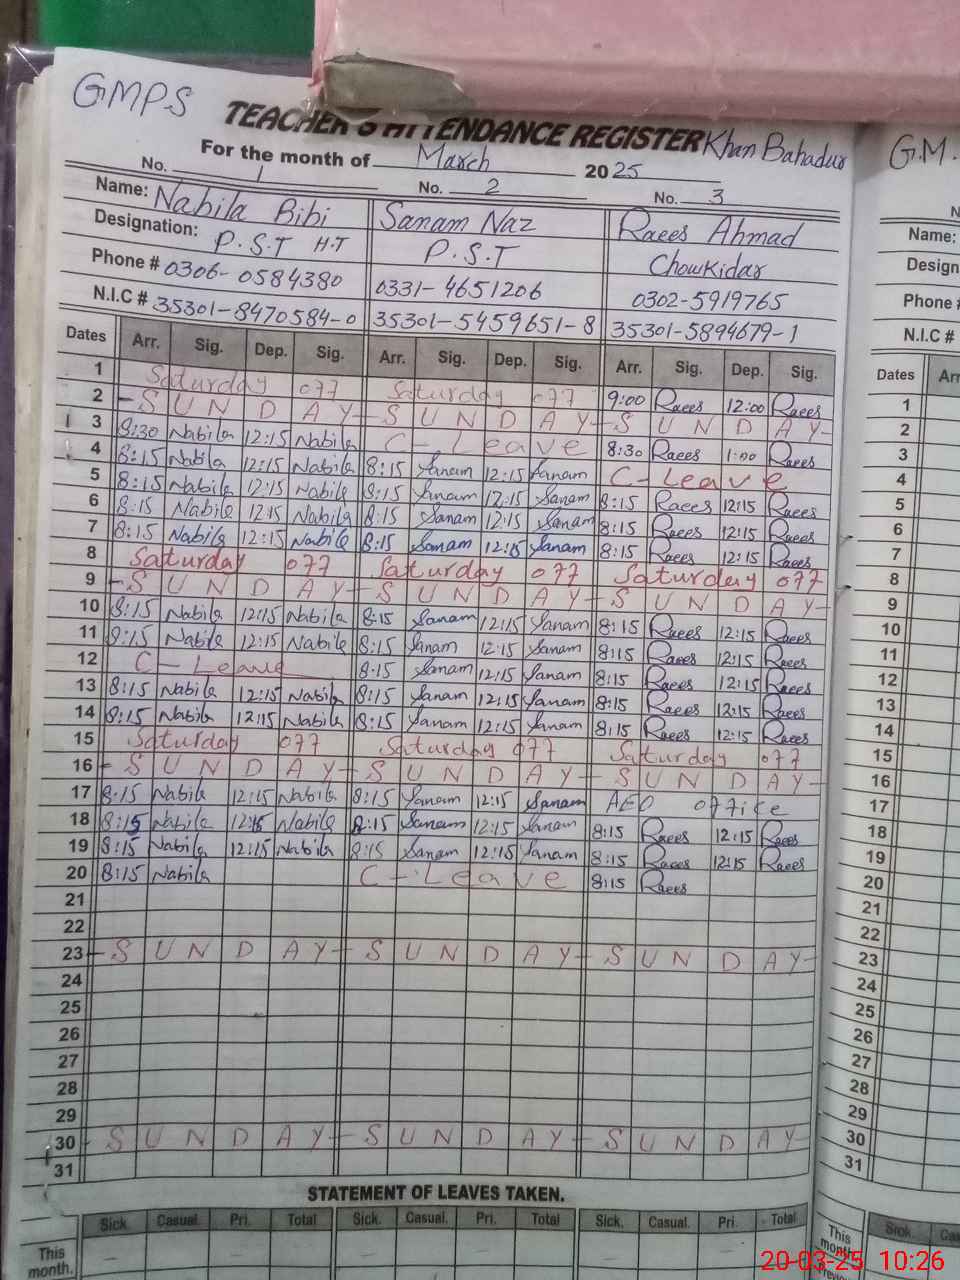 GMPS
TEACHER'S ATTENDANCE REGISTER Khan Bahadur
For the month of March 2025
No. 1 No. 2 No. 3
Name: Nabila Bibi Sanam Naz Raees Ahmad
Designation: P.S.T H.T P.S.T Chowkidar
Phone # 0306-0584380 0331-4651206 0302-5919765
N.I.C # 35301-8470584-0 35301-5459651-8 35301-5894679-1
Dates Arr. Sig. Dep. Sig. Arr. Sig. Dep. Sig. Arr. Sig. Dep. Sig.
1 Saturday off Saturday off 9:00 Raees 12:00 Raees
2 SUNDAY SUNDAY SUNDAY
3 8:30 Nabila 12:15 Nabila C-Leave 8:30 Raees 1:00 Raees
4 8:15 Nabila 12:15 Nabila 8:15 Sanam 12:15 Sanam C-Leave
5 8:15 Nabila 12:15 Nabila 8:15 Sanam 12:15 Sanam 8:15 Raees 12:15 Raees
6 8:15 Nabila 12:15 Nabila 8:15 Sanam 12:15 Sanam 8:15 Raees 12:15 Raees
7 8:15 Nabila 12:15 Nabila 8:15 Sanam 12:15 Sanam 8:15 Raees 12:15 Raees
8 Saturday off Saturday off Saturday off
9 SUNDAY SUNDAY SUNDAY
10 8:15 Nabila 12:15 Nabila 8:15 Sanam 12:15 Sanam 8:15 Raees 12:15 Raees
11 8:15 Nabila 12:15 Nabila 8:15 Sanam 12:15 Sanam 8:15 Raees 12:15 Raees
12 C-Leave 8:15 Sanam 12:15 Sanam 8:15 Raees 12:15 Raees
13 8:15 Nabila 12:15 Nabila 8:15 Sanam 12:15 Sanam 8:15 Raees 12:15 Raees
14 8:15 Nabila 12:15 Nabila 8:15 Sanam 12:15 Sanam 8:15 Raees 12:15 Raees
15 Saturday off Saturday off Saturday off
16 SUNDAY SUNDAY SUNDAY
17 8:15 Nabila 12:15 Nabila 8:15 Sanam 12:15 Sanam AEO office
18 8:15 Nabila 12:15 Nabila 8:15 Sanam 12:15 Sanam 8:15 Raees 12:15 Raees
19 8:15 Nabila 12:15 Nabila 8:15 Sanam 12:15 Sanam 8:15 Raees 12:15 Raees
20 8:15 Nabila C-Leave 8:15 Raees
21
22
23 SUNDAY SUNDAY SUNDAY
24
25
26
27
28
29
30 SUNDAY SUNDAY SUNDAY
31
STATEMENT OF LEAVES TAKEN.
Sick. Casual. Pri. Total Sick. Casual. Pri. Total Sick. Casual. Pri. Total
This month.
G.M.
Name:
Phone
N.I.C #
Dates
1
2
3
4
5
6
7
8
9
10
11
12
13
14
15
16
17
18
19
20
21
22
23
24
25
26
27
28
29
30
31
Sick.
This
month.
20-03-25 10:26